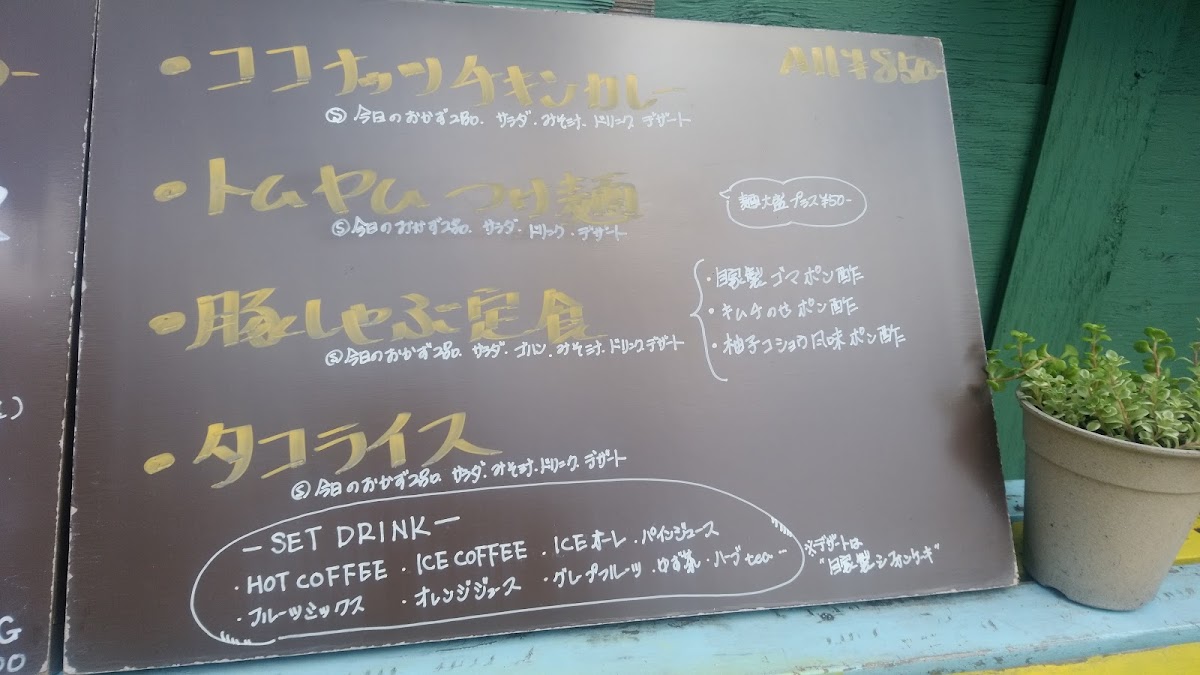 ・ココナッツチキンカレー
All ¥850-
Ⓢ今日のおかず2品、サラダ・みそ汁、ドリンク デザート
・トムヤムつけ麺
麺大盛プラス¥50-
Ⓢ今日のおかず2品、サラダ・ドリンク・デザート
・豚しゃぶ定食
Ⓢ今日のおかず2品、サラダ、ゴハン、みそ汁、ドリンク デザート
・自家製ゴマポン酢
・キムチのせポン酢
・柚子コショウ風味ポン酢
・タコライス
Ⓢ今日のおかず2品、サラダ、みそ汁、ドリンク デザート
ーSET DRINKー
・HOT COFFEE ・ICE COFFEE ・ICEオーレ ・パインジュース
・フルーツミックス ・オレンジジュース ・グレープフルーツ ・ゆず茶 ・ハーブtea
※デザートは
"自家製シフォンケーキ"
G
00